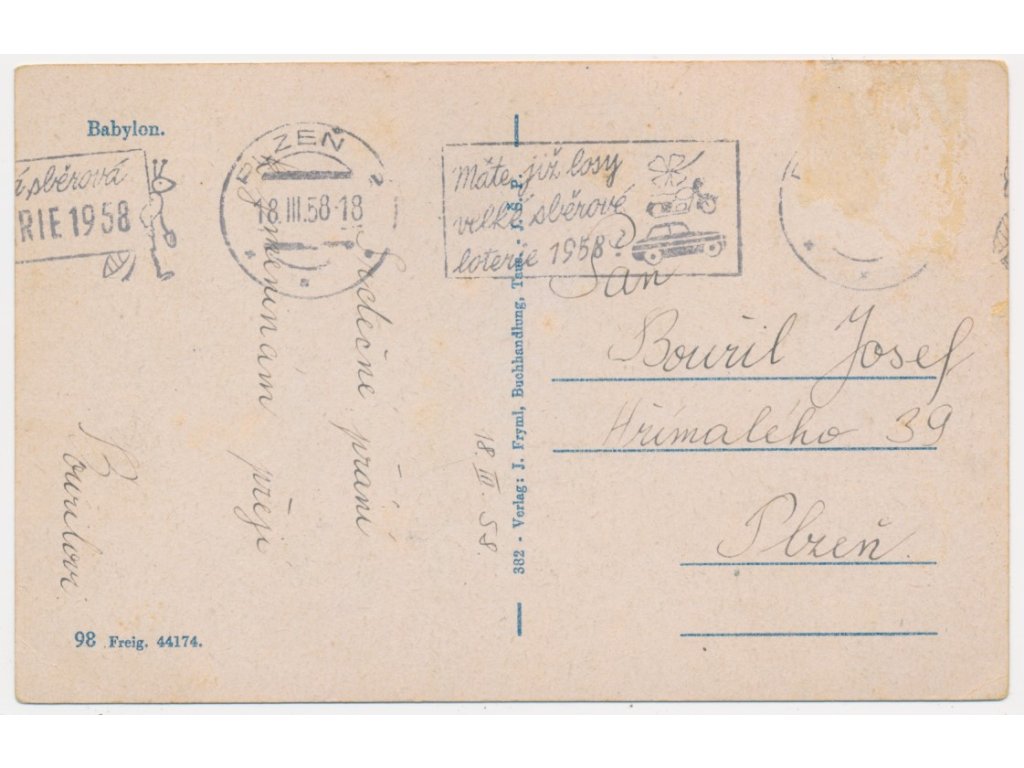 Babylon.
á sběrová
RIE 1958
PLZEŇ 2
18.III.58-18
Máte již losy
velké sběrové
loterie 1958?
Srdečné přání
k jmeninám přeji
Bouřilovi
18. III. 58.
382 - Verlag: J. Fryml, Buchhandlung, Taus. - J. Š. P.
Pan
Bouřil Josef
Hřímalého 39
Plzeň.
98 Freig. 44174.